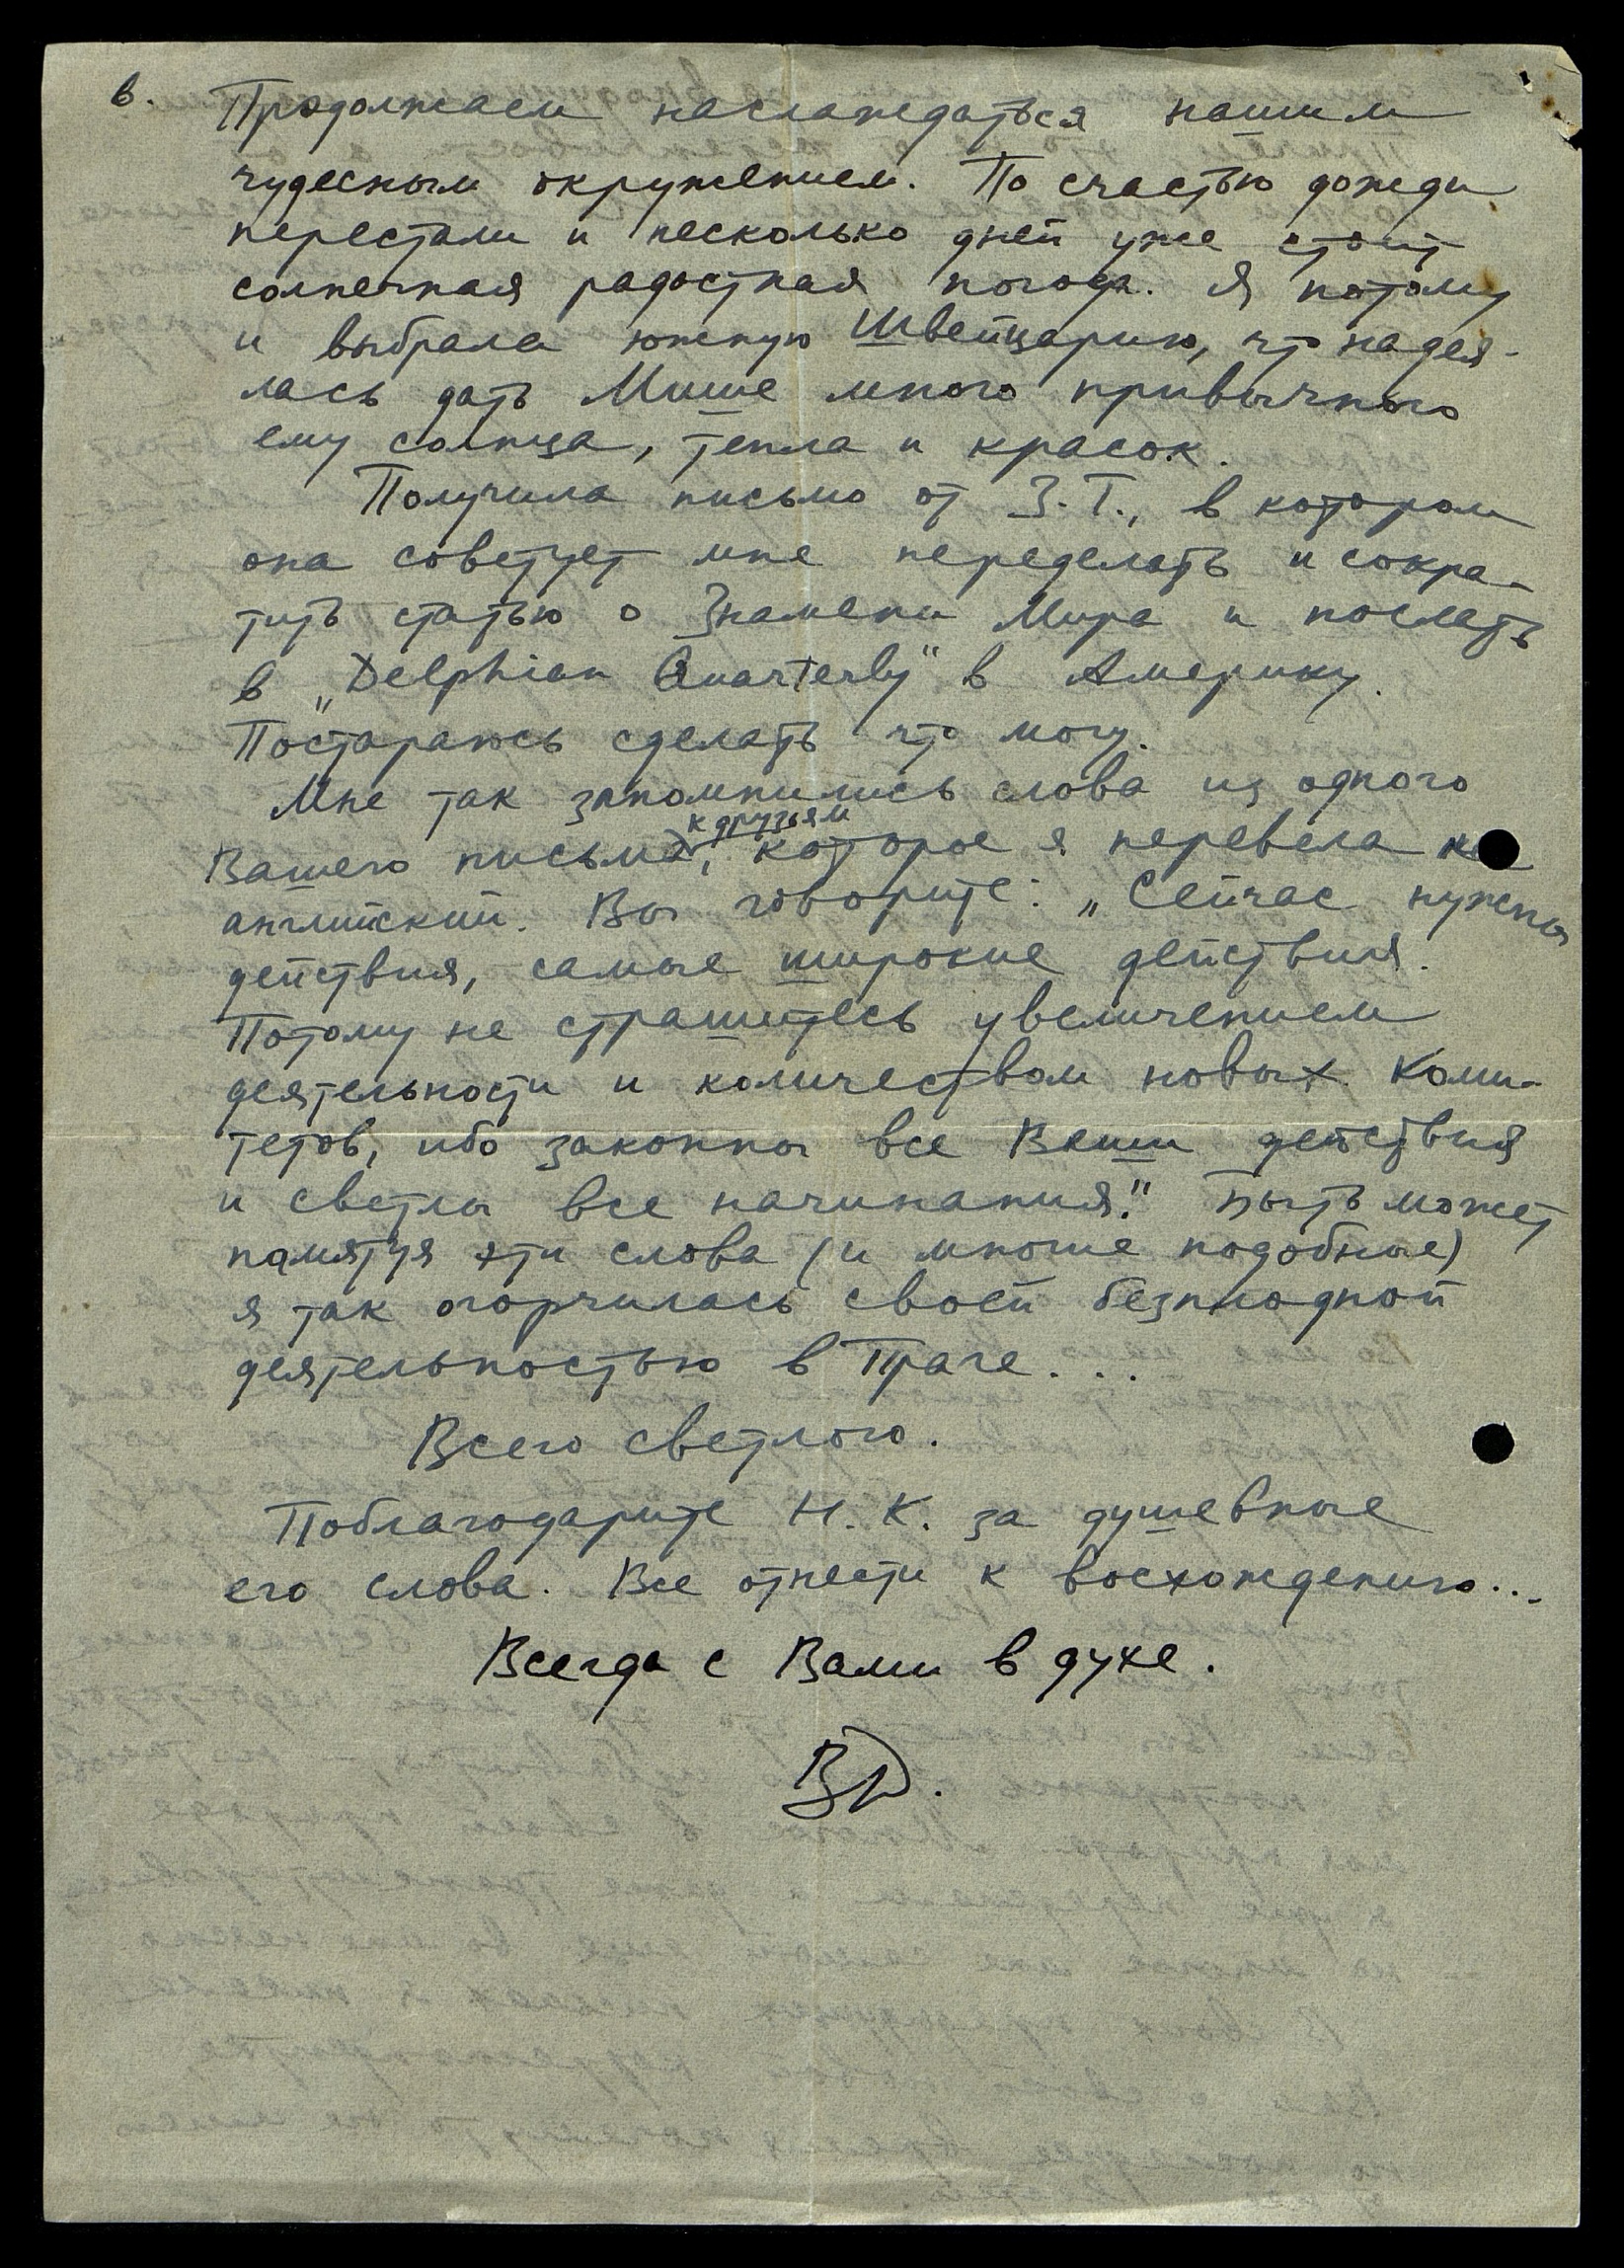 6. Продолжаем наслаждаться нашим
чудесным окружением. По счастью дожди
перестали и несколько дней уже стоит
солнечная радостная погода. Я потому
и выбрала южную Швейцарию, что надея-
лась дать Мише много привычного
ему солнца, тепла и красок.
Получила письмо от З.Г., в котором
она советует мне переделать и сокра-
тить статью о Знамени Мира и послать
в „Delphian Quarterly" в Америку.
Постараюсь сделать что могу.
Мне так запомнились слова из одного
к друзьям
Вашего письма, которое я перевела на
английский. Вы говорите: „Сейчас нужны
действия, самые широкие действия.
Потому не страшитесь увеличением
деятельности и количеством новых Коми-
тетов, ибо законны все Ваши действия
и светлы все начинания." Быть может
памятуя эти слова (и многие подобные)
я так огорчилась своей безплодной
деятельностью в Праге...
Всего светлого.
Поблагодарите Н.К. за душевные
его слова. Все отнести к восхождению...
Всегда с Вами в духе.
ВД.